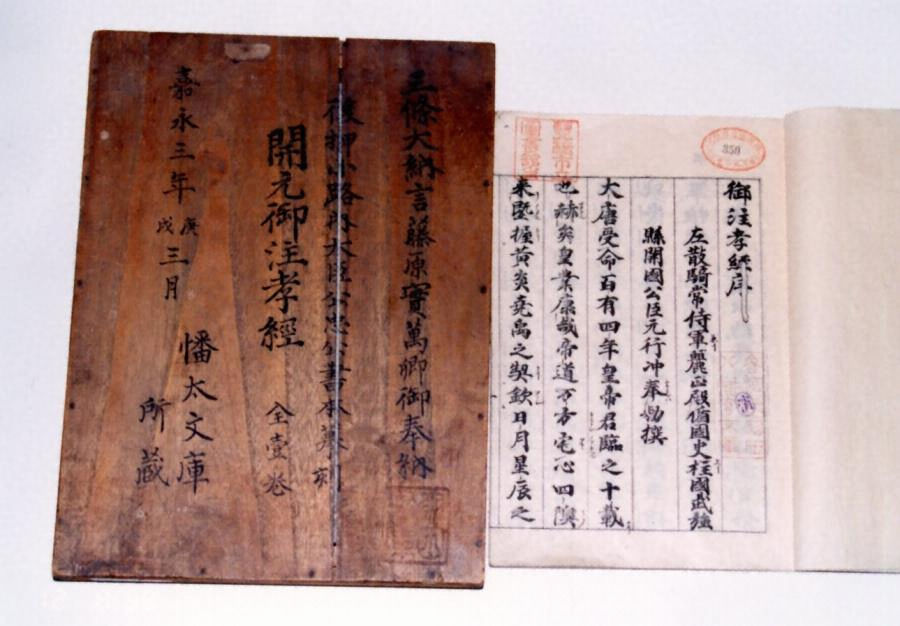 三條大納言藤原實萬卿御奉納
後押小路内大臣公忠公書本摹刻
開元御注孝經 全壹卷
嘉永三年庚戌三月
幡太文庫
所藏
350
御注孝経序
左散騎常侍軍麗正殿脩國史柱國武強
縣開國公臣元行冲奉勅撰
大唐受命百有四年皇帝君臨之十載
也赫矣皇業康哉帝道万方宅心四隩
来曁握黄炎堯禹之契欽日月星辰之